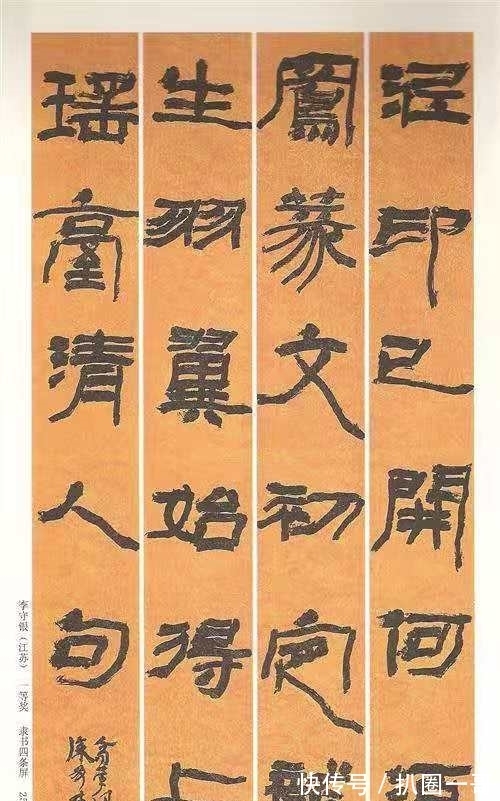 泥印已開何
鳳篆文初定
生羽翼始得上
瑶臺清人句
李守银(江苏) 一等奖 隶书四条屏
快传号/扒圈一